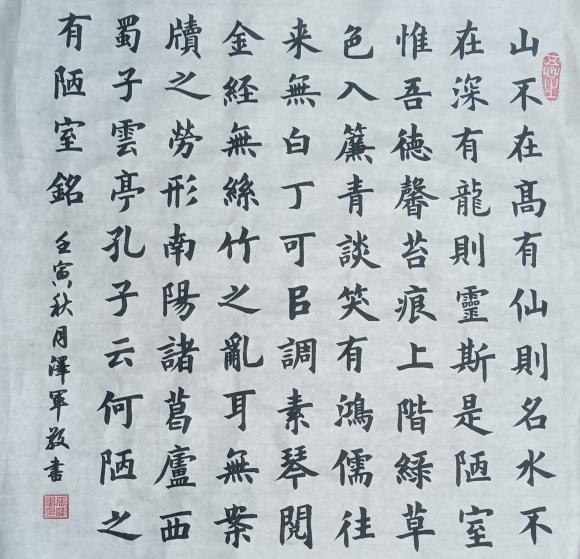 山不在髙有仙則名水不
在深有龍則靈斯是陋室
惟吾德馨苔痕上階綠草
色入簾青談笑有鴻儒往
来無白丁可㠯調素琴閱
金經無絲竹之亂耳無案
牘之勞形南陽諸葛廬西
蜀子雲亭孔子云何陋之
有陋室銘
壬寅秋月澤軍敬書